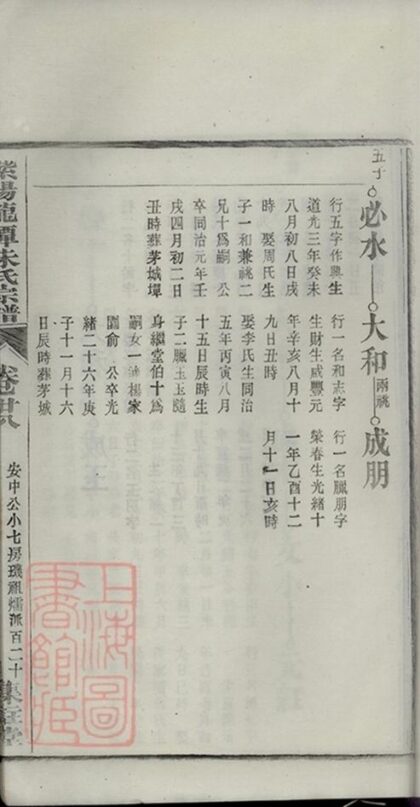 五子
必水
大和
兩祧
成朋
行五字作興生
道光三年癸未
八月初八日戌
時　娶周氏生
子一和兼祧二
兄十爲嗣　公
卒同治元年壬
戌四月初二日
丑時葬茅城墠
行一名和志字
生財生咸豐元
年辛亥八月十
九日丑時
娶李氏生同治
五年丙寅八月
十五日辰時生
子二臘玉玉隨
身繼堂伯十爲
嗣女一適楊家
園俞　公卒光
緒二十六年庚
子十一月十六
日辰時葬茅城
行一名臘朋字
榮春生光緒十
一年乙酉十二
月十一日亥時
紫陽龍潭朱氏宗譜
卷廿八
安中公小七房璣祖燸派百二十
上海圖書館